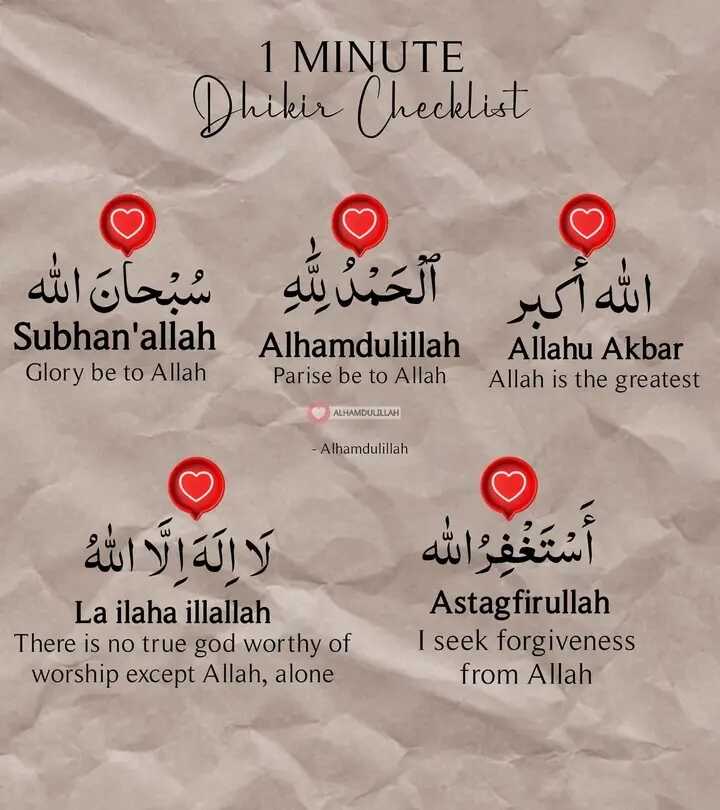 1 MINUTE
Dhikir Checklist
سُبْحَانَ الله
Subhan'allah
Glory be to Allah
ٱلْحَمْدُ لِلَّٰهِ
Alhamdulillah
Parise be to Allah
الله أكبر
Allahu Akbar
Allah is the greatest
ALHAMDULILLAH
- Alhamdulillah
لَا إِلَهَ إِلَّا اللهُ
La ilaha illallah
There is no true god worthy of
worship except Allah, alone
أَسْتَغْفِرُ الله
Astagfirullah
I seek forgiveness
from Allah